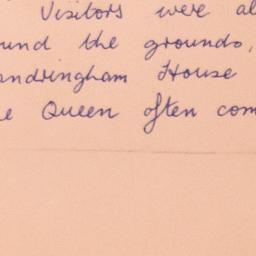 Visitors were al
und the grounds,
andringham House
e Queen often com